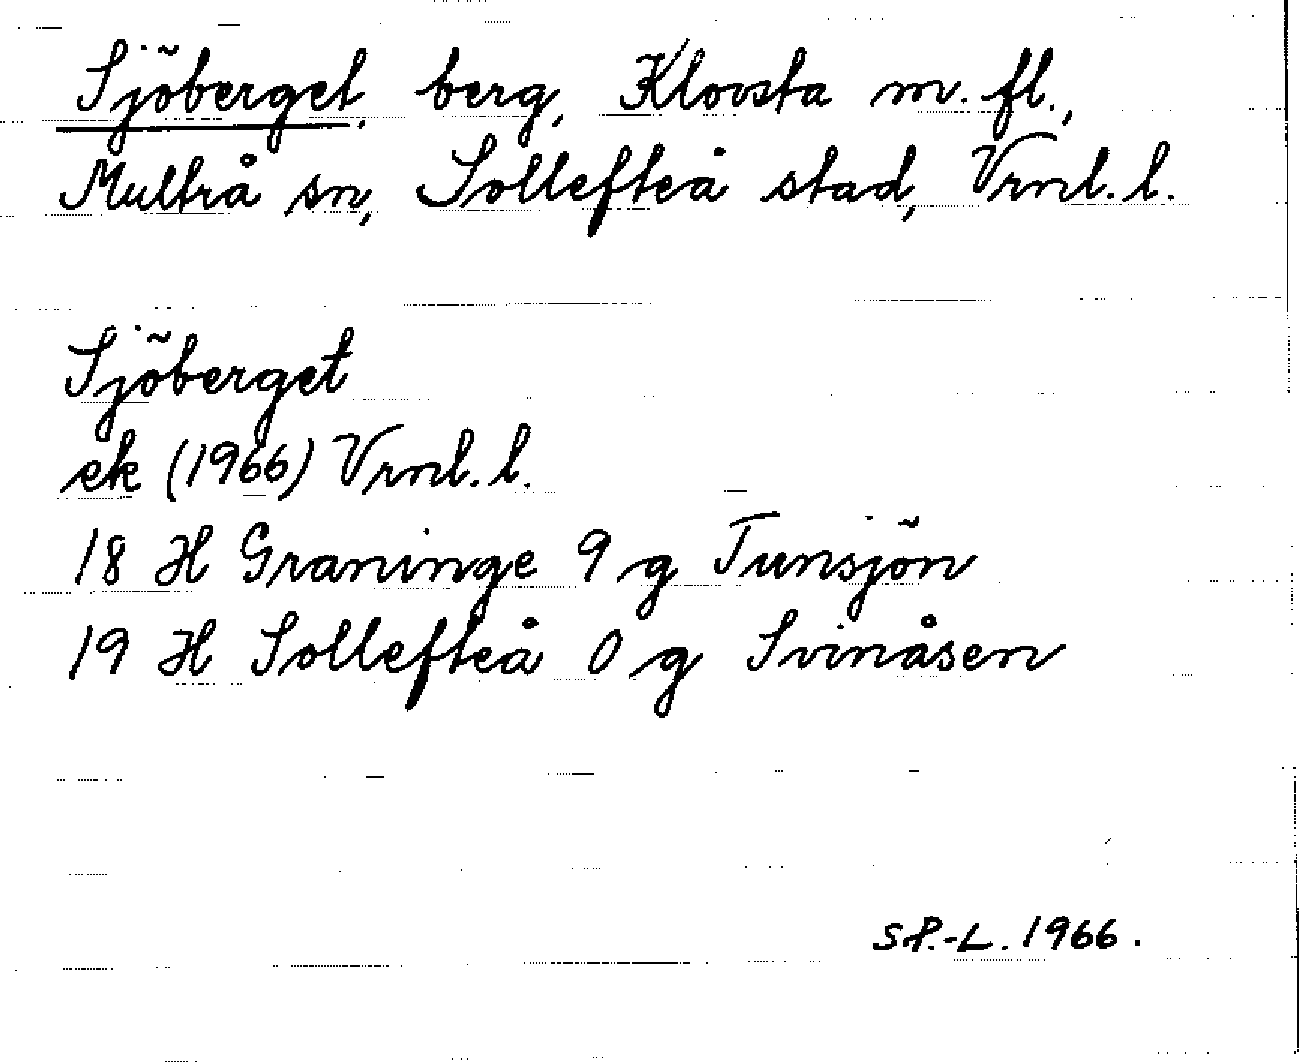 Sjöberget, berg, Klovsta m. fl.,
Multrå sn, Sollefteå stad, Vrnl. l.
Sjöberget
ek (1966) Vrnl. l.
18 H Graninge 9 g Tunsjön
19 H Sollefteå 0 g Svinåsen
S P.-L. 1966.